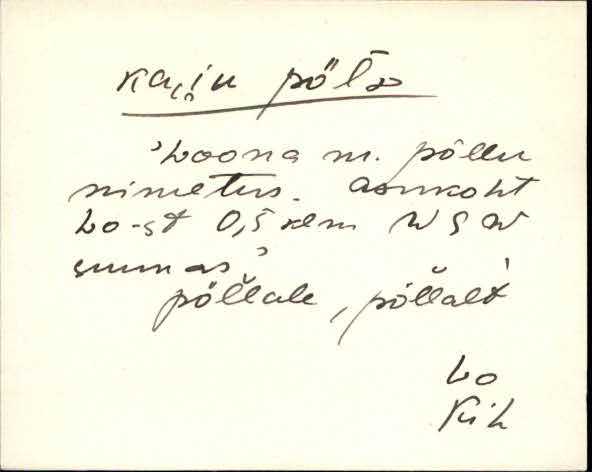 kai̯u põl̄D
'Loona m. põllu
nimetus. asukoht
Lo-st 0,5 km WSW
suunas'
põl̆lale, põl̆lalt
Lo
Kih